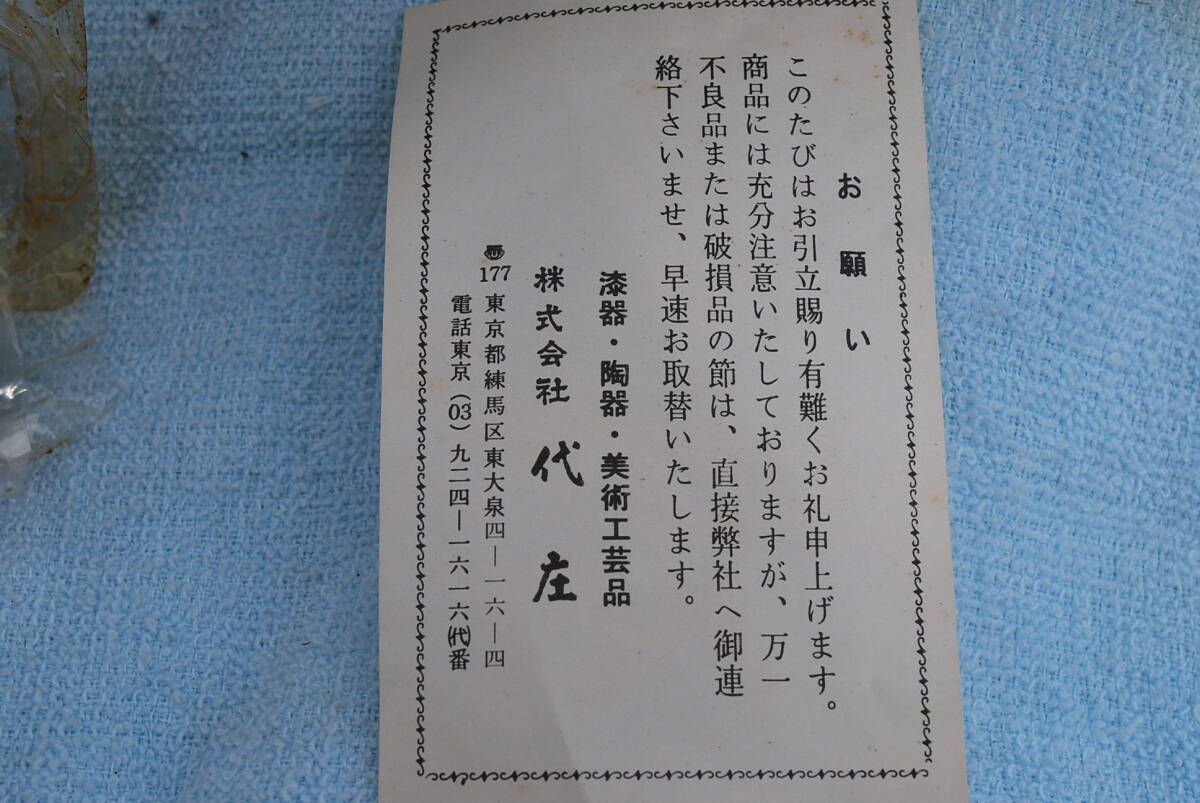 お願い
このたびはお引立賜り有難くお礼申上げます。
商品には充分注意いたしておりますが、万一
不良品または破損品の節は、直接弊社へ御連
絡下さいませ、早速お取替いたします。
漆器・陶器・美術工芸品
株式会社 代庄
〠177 東京都練馬区東大泉四―一六―四
電話東京(03)九二四―一六一六㈹番